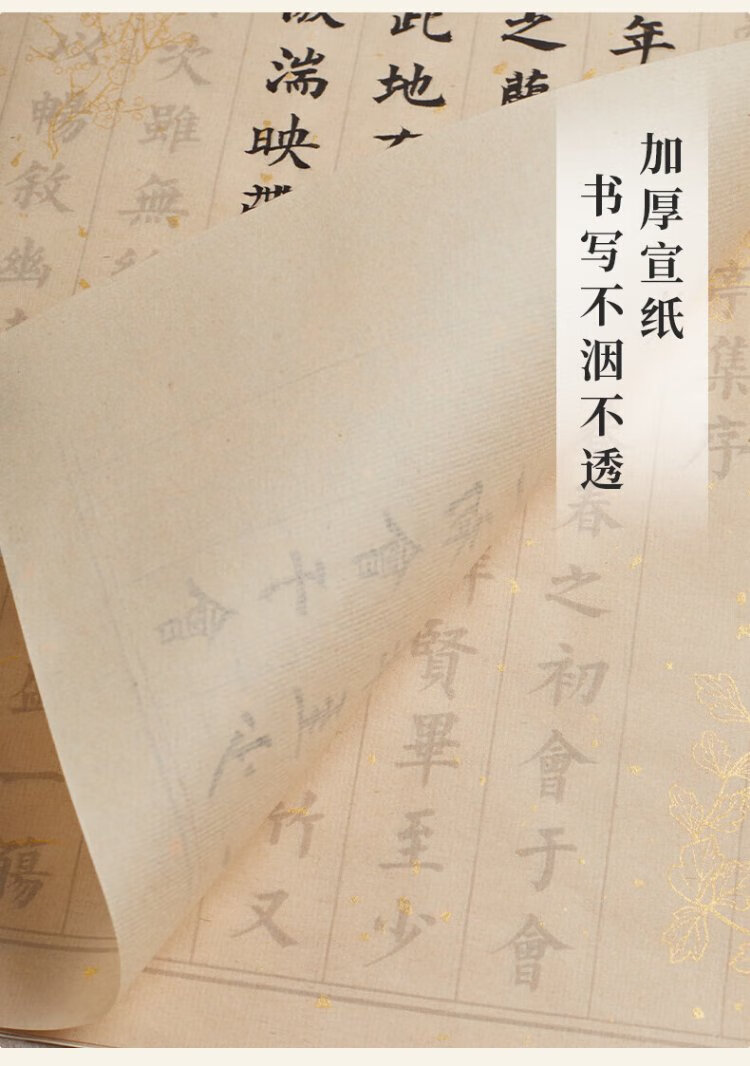 加厚宣纸
书写不洇不透
亭集序
年
春之初會于會
之蘭
賢畢至少
此地
竹又
湍映
次雖無
以暢敘幽
一觴